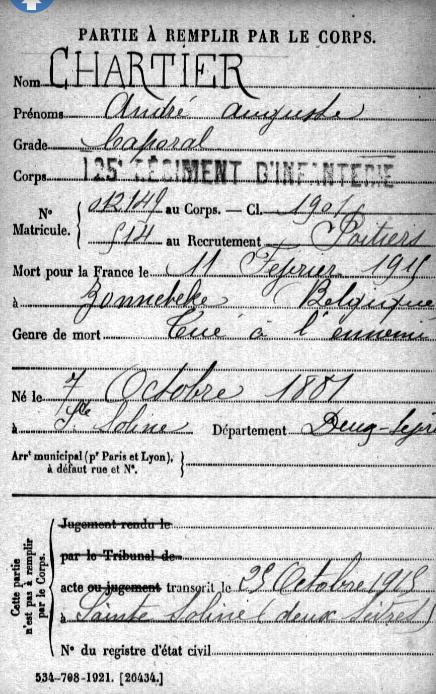 PARTIE À REMPLIR PAR LE CORPS.
Nom CHARTIER
Prénoms André Auguste
Grade Caporal
Corps 125e RÉGIMENT D'INFANTERIE
N° Matricule. 012149 au Corps. — Cl. 1901
514 au Recrutement Poitiers
Mort pour la France le 11 Février 1915
à Zonnebeke Belgique
Genre de mort Tué à l'ennemi
Né le 7 Octobre 1881
à Ste Soline Département Deux-Sèvres
Arrt municipal (pr Paris et Lyon),
à défaut rue et N°.
Cette partie n'est pas à remplir par le Corps.
Jugement rendu le
par le Tribunal de
acte ou jugement transcrit le 25 Octobre 1915
à Sainte Soline (deux Sèvres)
N° du registre d'état civil
534-708-1921. [26434.]